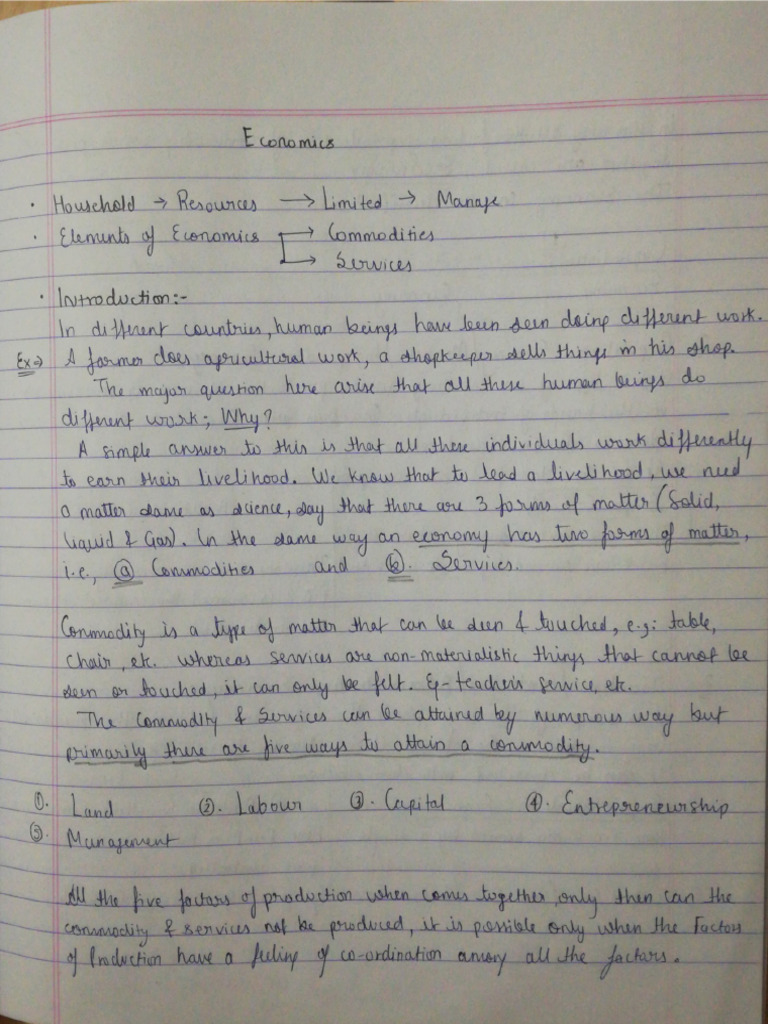 Economics
• Household → Resources → Limited → Manage
• Elements of Economics → Commodities
→ Services
• Introduction:-
In different countries, human beings have been seen doing different work.
Ex→ A farmer does agricultural work, a shopkeeper sells things in his shop.
The major question here arise that all these human beings do
different work; Why?
A simple answer to this is that all these individuals work differently
to earn their livelihood. We know that to lead a livelihood, we need
a matter same as science, say that there are 3 forms of matter (Solid,
liquid & Gas). In the same way an economy has two forms of matter,
i.e., (a) Commodities and (b). Services.
Commodity is a type of matter that can be seen & touched, e.g: table,
Chair, etc. whereas services are non-materialistic things that cannot be
seen or touched, it can only be felt. Eg-teacher's service, etc.
The Commodity & Services can be attained by numerous way but
primarily there are five ways to attain a commodity.
①. Land ②. Labour ③. Capital ④. Entrepreneurship
⑤. Management
All the five factors of production when comes together, only then can the
commodity & services not be produced, it is possible only when the Factors
of Production have a feeling of co-ordination among all the factors.